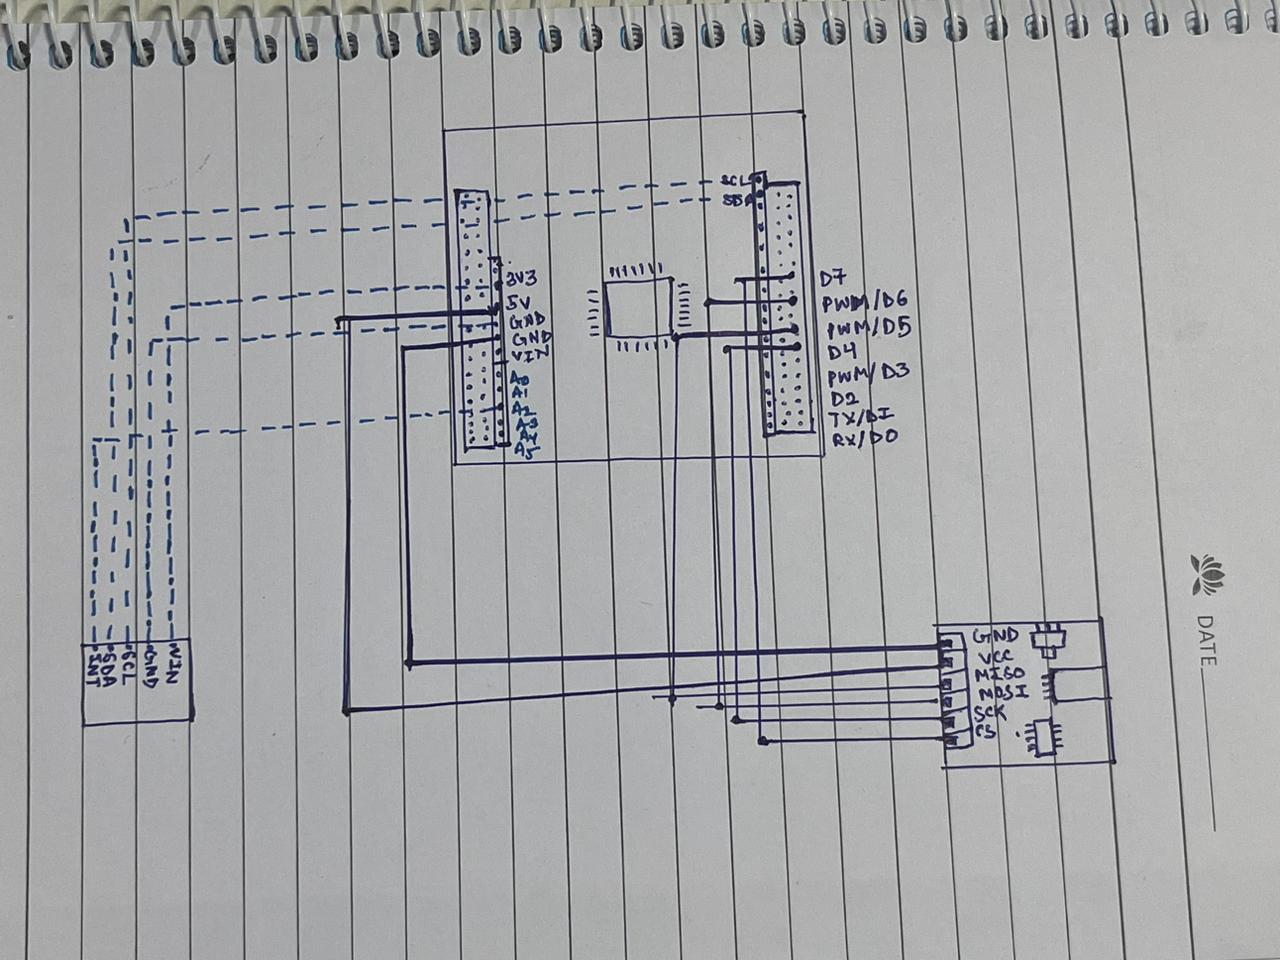 SCL
SDA
3V3
5V
GND
GND
VIN
A0
A1
A2
A3
A4
A5
D7
PWM/D6
PWM/D5
D4
PWM/D3
D2
TX/D1
RX/D0
VIN
GND
SCL
SDA
INT
GND
VCC
MISO
MOSI
SCK
CS
DATE